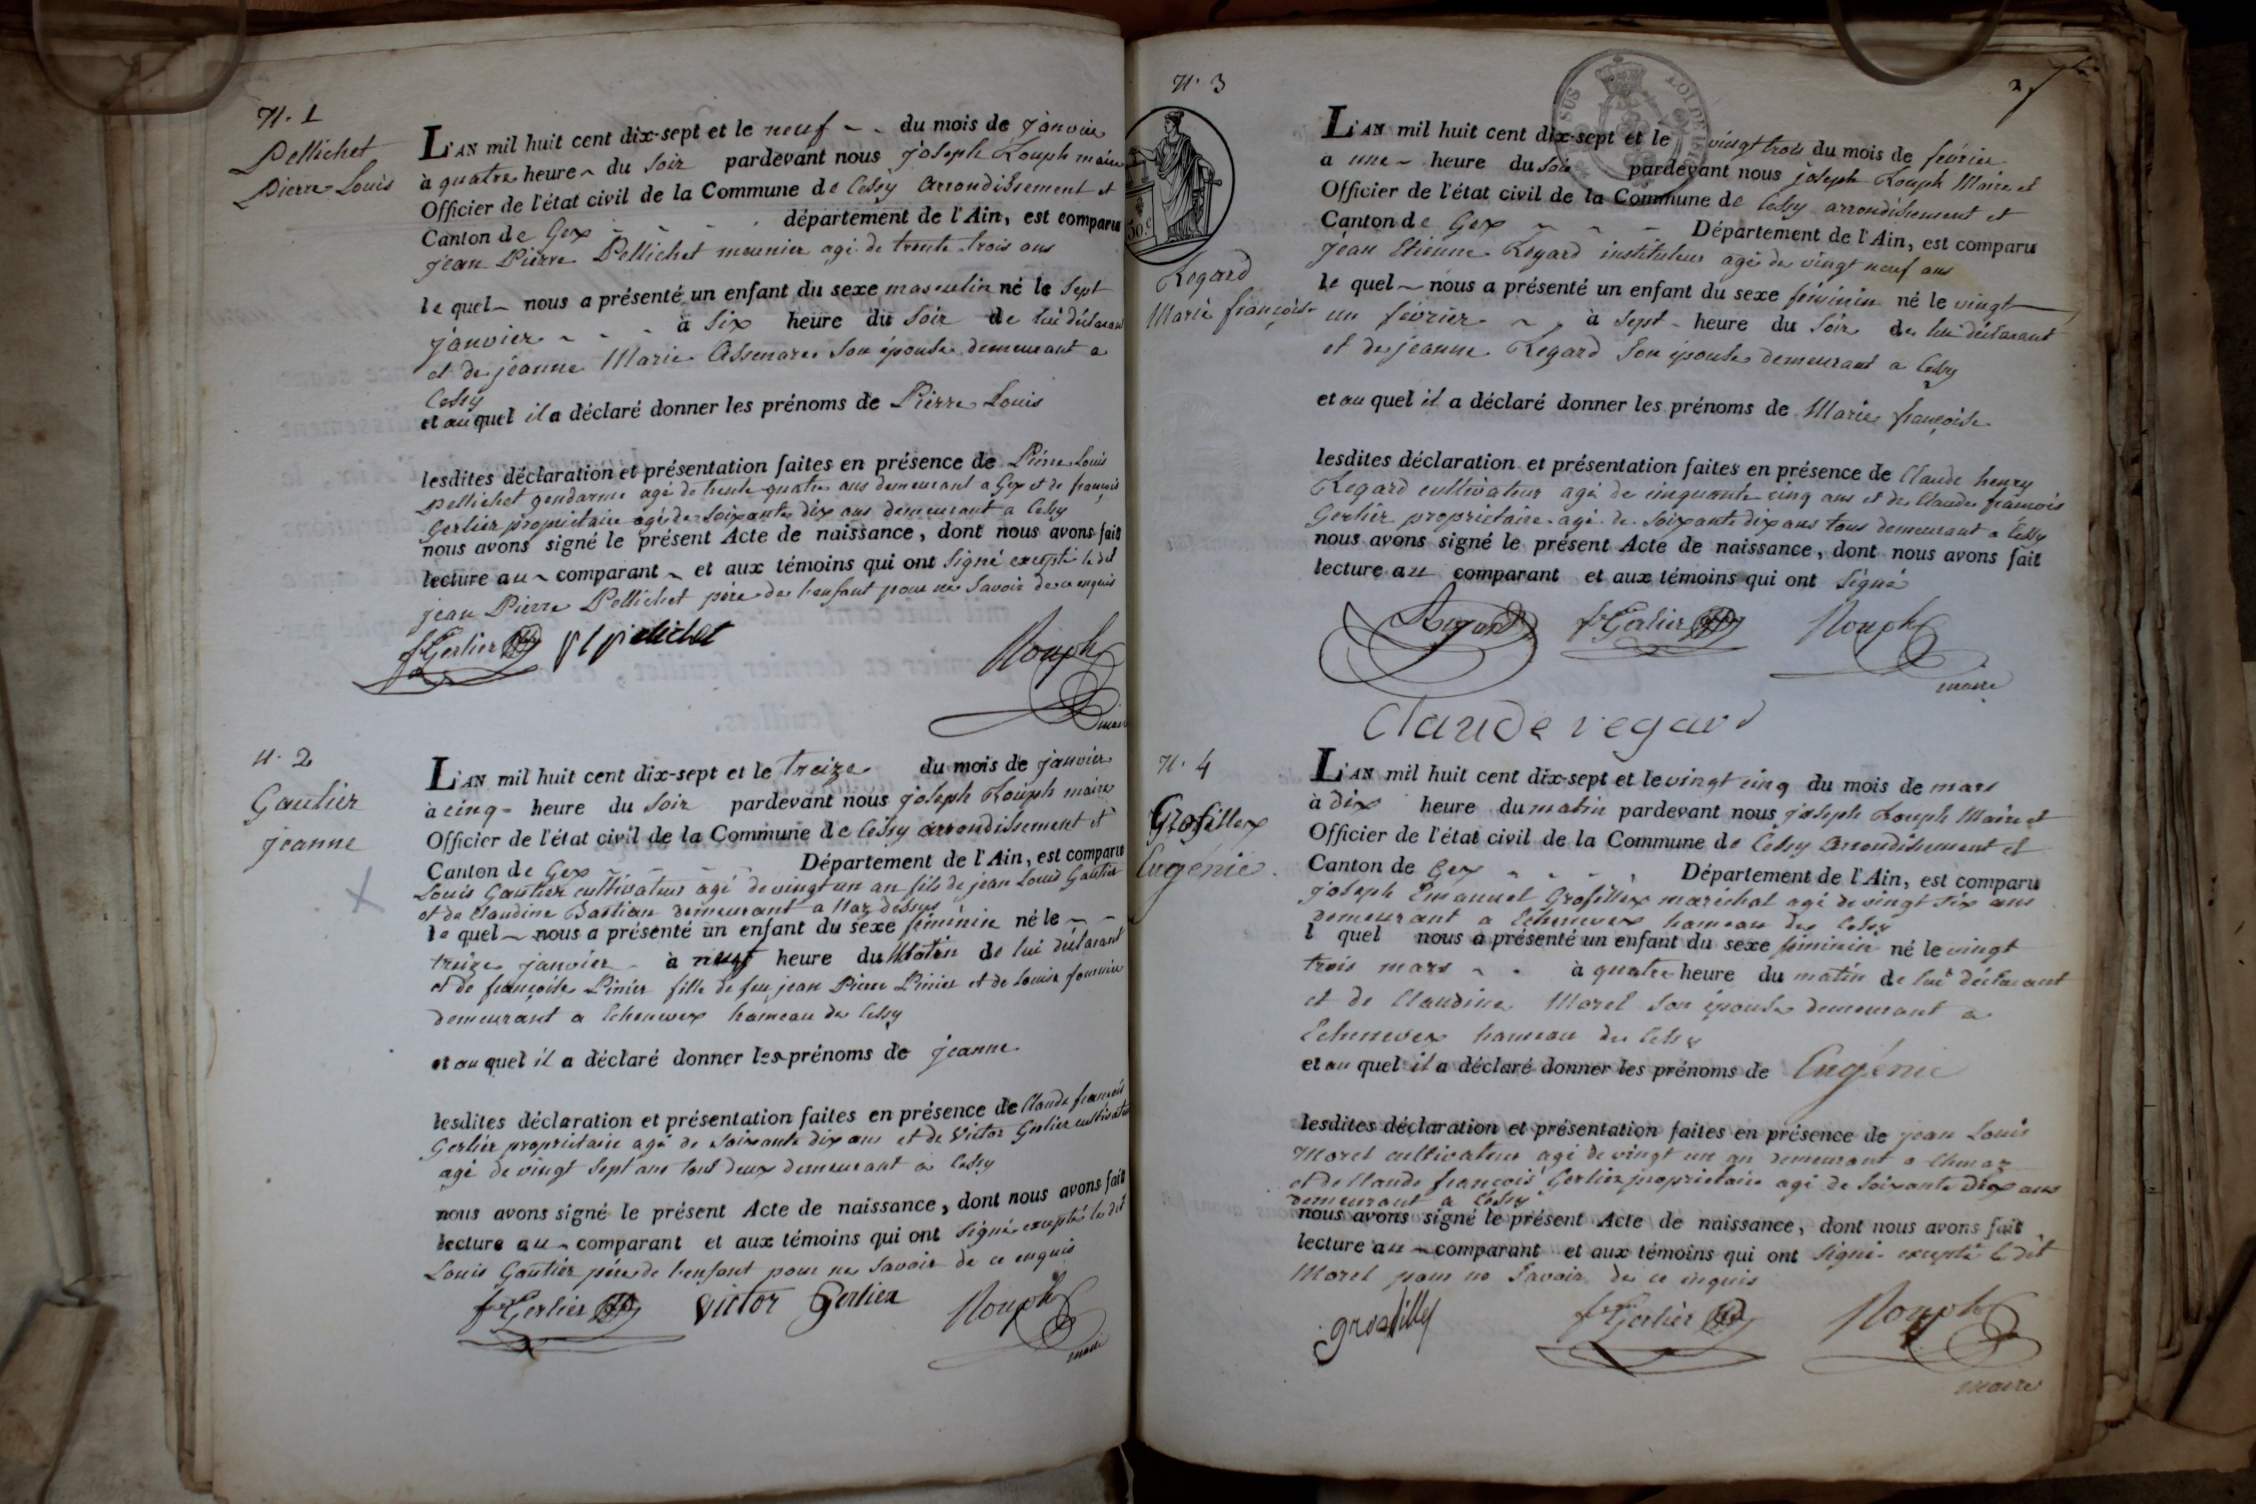 N. 1
Pellichet
Pierre Louis
L'AN mil huit cent dix-sept et le neuf du mois de janvier
à quatre heure du soir pardevant nous joseph Rouph maire
Officier de l'état civil de la Commune de Cessy arrondissement et
Canton de Gex département de l'Ain, est comparu
jean Pierre Pellichet meunier agé de trente trois ans
le quel nous a présenté un enfant du sexe masculin né le sept
janvier à six heure du soir de lui déclarant
et de jeanne Marie son épouse demeurant a
Cessy
et au quel il a déclaré donner les prénoms de Pierre Louis
lesdites déclaration et présentation faites en présence de Pierre Louis
Pellichet gendarme agé de trente quatre ans demeurant a Gex et de françois
Gerlier propriétaire agé de soixante dix ans demeurant a Cessy
nous avons signé le présent Acte de naissance, dont nous avons fait
lecture au comparant et aux témoins qui ont signé excepté le dit
jean Pierre Pellichet père de l'enfant pour ne savoir de ce enquis
fs Gerlier p l pelichet Rouph
maire
N. 2
Gautier
jeanne
L'AN mil huit cent dix-sept et le treize du mois de janvier
à cinq heure du soir pardevant nous joseph Rouph maire
Officier de l'état civil de la Commune de Cessy arrondissement et
Canton de Gex Département de l'Ain, est comparu
Louis Gautier cultivateur agé de vingt un an fils de jean Louis Gautier
et de Claudine Bastian demeurant a Naz dessus
le quel nous a présenté un enfant du sexe féminin né le
treize janvier à neuf heure du Matin de lui déclarant
et de françoise Pinier fille de feu jean Pierre Pinier et de Louise fournier
demeurant a Echenevex hameau de Cessy
et au quel il a déclaré donner les prénoms de jeanne
lesdites déclaration et présentation faites en présence de Claude françois
Gerlier propriétaire agé de soixante dix ans et de Victor Gerlier cultivateur
agé de vingt sept ans tout deux demeurant a Cessy
nous avons signé le présent Acte de naissance, dont nous avons fait
lecture au comparant et aux témoins qui ont signé excepté le dit
Louis Gautier père de l'enfant pour ne savoir de ce enquis
fs Gerlier victor Gerlier Rouph
maire
N. 3
2
SUS LOI DE 1816
50 c
Regard
Marie françoise
L'AN mil huit cent dix-sept et le vingt trois du mois de février
a une heure du soir pardevant nous joseph Rouph Maire et
Officier de l'état civil de la Commune de Cessy arrondissement et
Canton de Gex Département de l'Ain, est comparu
jean Etienne Regard instituteur agé de vingt neuf ans
le quel nous a présenté un enfant du sexe féminin né le vingt
un février à sept heure du soir de lui déclarant
et de jeanne Regard son épouse demeurant a Cessy
et au quel il a déclaré donner les prénoms de Marie françoise
lesdites déclaration et présentation faites en présence de Claude henry
Regard cultivateur agé de cinquante cinq ans et de Claude françois
Gerlier propriétaire agé de soixante dix ans tous demeurant a Cessy
nous avons signé le présent Acte de naissance, dont nous avons fait
lecture au comparant et aux témoins qui ont signé
Regard fs Gerlier Rouph
maire
Claude regard
N. 4
Grosfillex
Eugénie
L'AN mil huit cent dix-sept et le vingt cinq du mois de mars
à dix heure du matin pardevant nous joseph Rouph Maire et
Officier de l'état civil de la Commune de Cessy arrondissement et
Canton de Gex Département de l'Ain, est comparu
joseph Emanuel Grosfillex maréchal agé de vingt six ans
demeurant a Echenevex hameau de Cessy
l quel nous a présenté un enfant du sexe féminin né le vingt
trois mars à quatre heure du matin de lui déclarant
et de Claudine Morel son épouse demeurant a
Echenevex hameau de Cessy
et au quel il a déclaré donner les prénoms de Eugénie
lesdites déclaration et présentation faites en présence de jean Louis
Morel cultivateur agé de vingt un an demeurant a
et de Claude françois Gerlier propriétaire agé de soixante dix ans
demeurant a Cessy
nous avons signé le présent Acte de naissance, dont nous avons fait
lecture au comparant et aux témoins qui ont signé excepté le dit
Morel pour ne savoir de ce enquis
fs Gerlier Rouph
maire